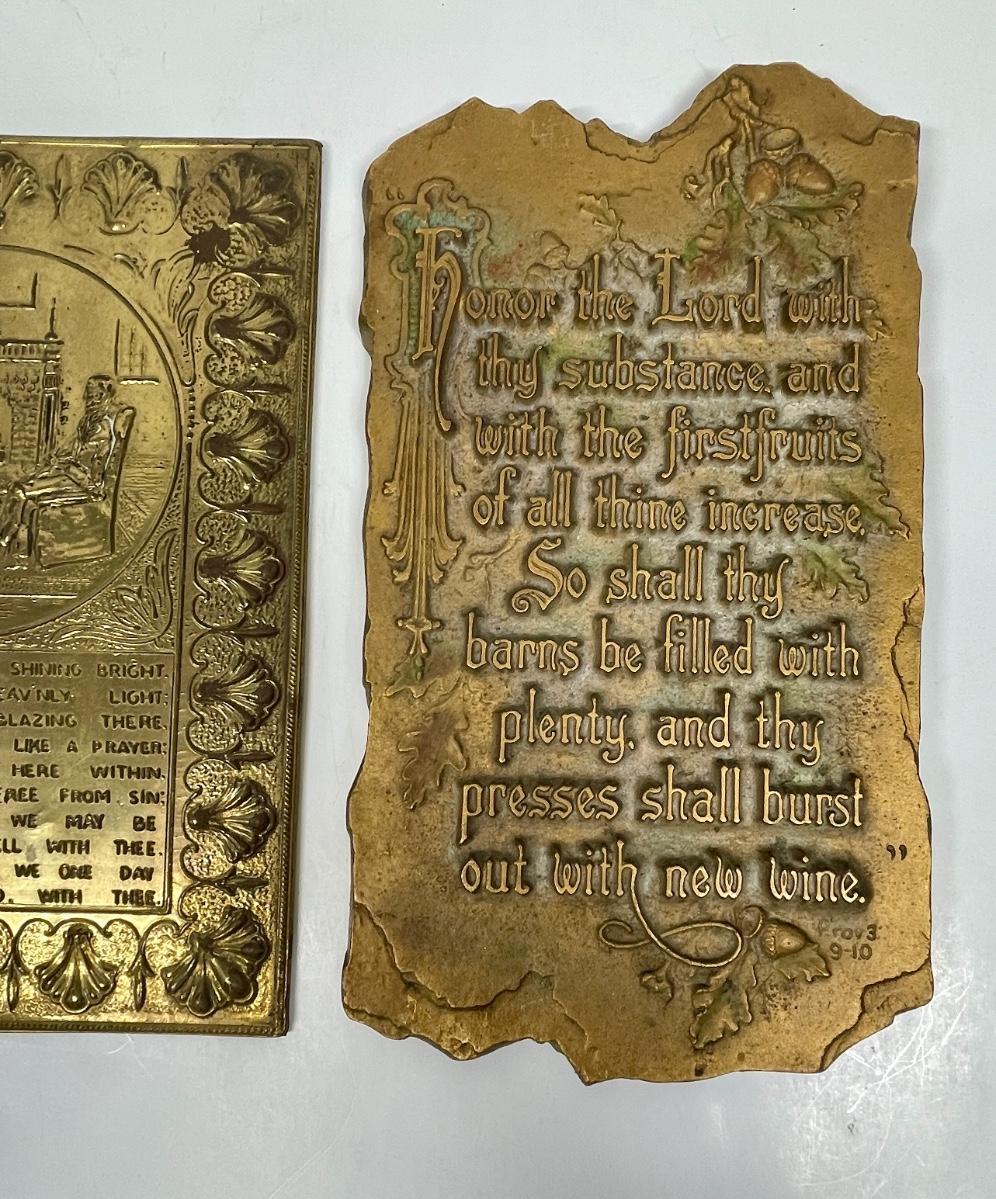 SHINING BRIGHT.
LIGHT;
BLAZING THERE,
LIKE A PRAYER;
HERE WITHIN,
FREE FROM SIN;
WE MAY BE
WITH THEE.
WE ONE DAY
WITH THEE.
"Honor the Lord with
thy substance, and
with the firstfruits
of all thine increase.
So shall thy
barns be filled with
plenty, and thy
presses shall burst
out with new wine."
Prov 3
9-10